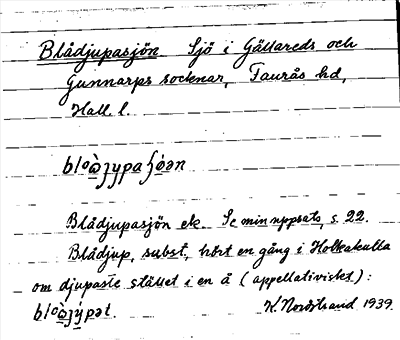 Blådjupasjön Sjö i Gällareds och
Gunnarps socknar, Faurås hd,
Hall. l.
Blådjupasjön ek. Se min uppsats, s. 22.
Blådjup, subst., hört en gång i Holkakulla
om djupaste stället i en å (appellativiskt):
K. Nordstrand 1939.